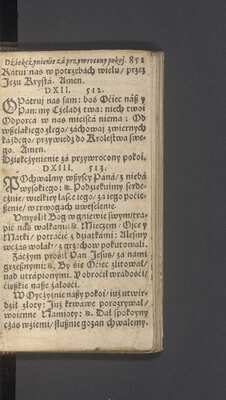 Dziękczynienie zá przywrocony pokoj. 851
Rátuj nas w potrzebách wielu / przez
Jezu Krystá. Amen.
DXII. 512.
OPátruj nas sam: boś Oćiec náß y
Pan: my Czeladź twa: niech twoi
Odporcá w nas mieścá niema: Od
wßelákiego złego / záchowaj zwiernych
káżdego / przywiedź do Krolestwá swe-
go. Amen.
Dziękczynienie zá przywrocony pokoj.
DXIII. 513.
POchwalmy wßyscy Páná / z niebá
wysokiego: &. Podziękujmy serde-
cznie / wielkiey łásce jego / zá jego pocie-
ßenie / w trwogách uweselenie.
Umyslił Bog w gniewie swym / tra-
pić nas walkámi: &. Mieczem / Ojce y
Mátki / potráćić z dziatkámi: Alesmy
wczás wołáli / z grzechow pokutowáli.
Záczym prośił Pan Jezus / zá námi
grzesznymi: &. By śię Oćiec zlitował /
nád utrapionymi. Y obroćił w rádość /
ćięßkie náße żáłośći.
W Oyczyznie náßy pokoj / już utwir-
dźił złoty: Już krwáwe porozrywał /
wojenne Namioty: &. Dał spokojny
czás wżiemi / słußnie go zań chwalemy.